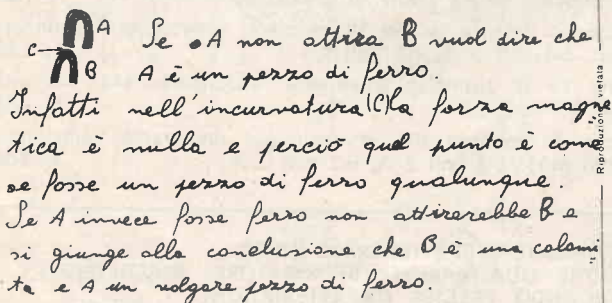 A
C
B
Se A non attira B vuol dire che
A è un pezzo di ferro.
Infatti nell'incurvatura (C) la forza magne
tica è nulla e perciò quel punto è come
se fosse un pezzo di ferro qualunque.
Se A invece fosse ferro non attirerebbe B e
si giunge alla conclusione che B è una calami
ta e A un volgare pezzo di ferro.
Riproduzione vietata